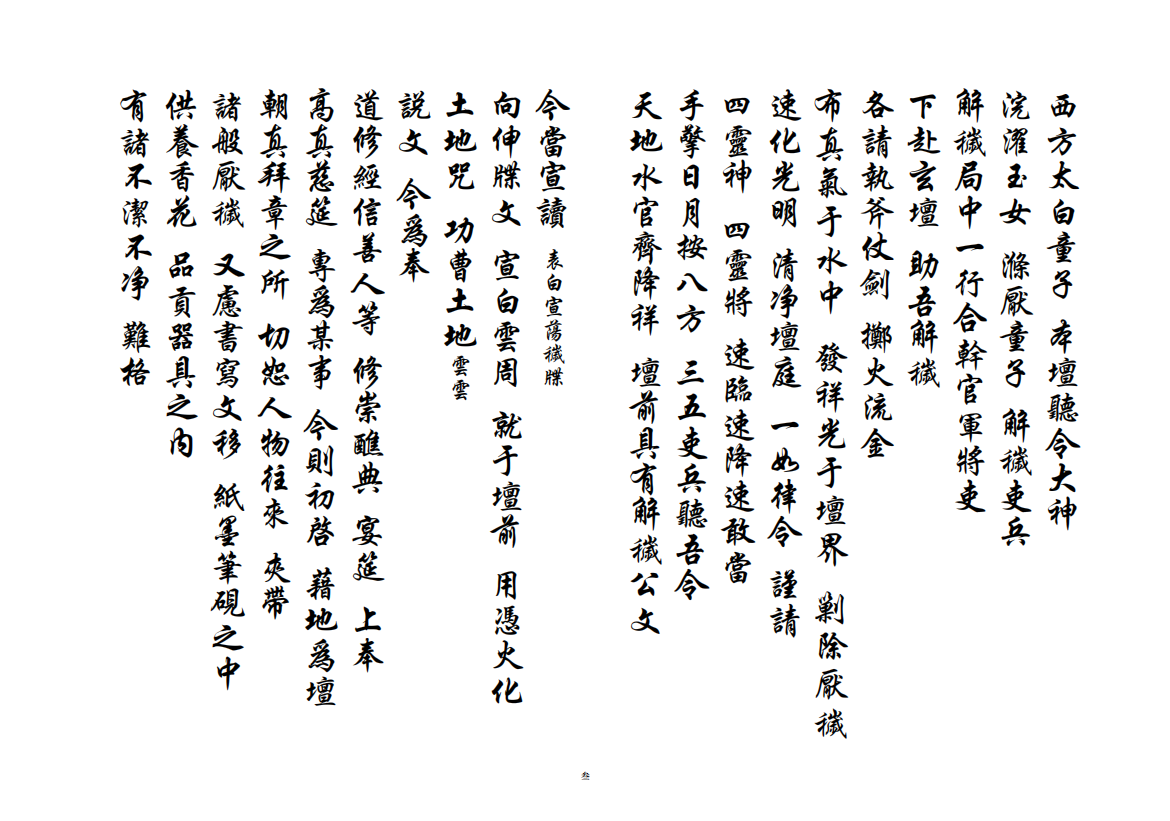 西方太白童子 本壇聽令大神
浣濯玉女 滌厭童子 解穢吏兵
解穢局中一行合幹官軍將吏
下赴玄壇 助吾解穢
各請執斧仗劍 擲火流金
布真氣于水中 發祥光于壇界 剿除厭穢
速化光明 清净壇庭 一如律令 謹請
四靈神 四靈將 速臨速降速敢當
手擎日月按八方 三五吏兵聽吾令
天地水官齊降祥 壇前具有解穢公文
今當宣讀 表白宣蕩穢牒
向伸牒文 宣白雲周 就于壇前 用憑火化
土地咒 功曹土地 雲雲
説文 今爲奉
道修經信善人等 修崇醮典 宴筵 上奉
高真慈筵 專爲某事 今則初啓 藉地爲壇
朝真拜章之所 切恕人物往來 夾帶
諸般厭穢 又慮書寫文移 紙墨筆硯之中
供養香花 品貢器具之内
有諸不潔不净 難格
叁